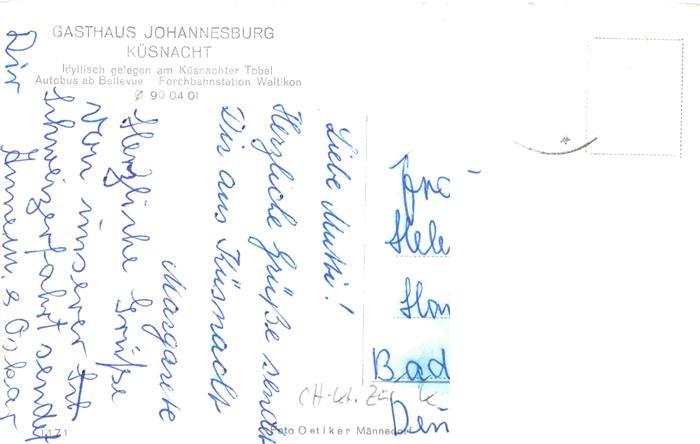 GASTHAUS JOHANNESBURG
KÜSNACHT
Idyllisch gelegen am Küsnachter Tobel
Autobus ab Bellevue Forchbahnstation Waltikon
✆ 90 04 01
Liebe Mutti!
Herzliche Grüße sendet
Dir aus Küsnacht
Margarete
Herzliche Grüße
von unserer
Schweizerfahrt sendet
Dir Annem & Oskar
Hele
Bad
CH-Kt. Zür
Foto Oetiker Männedorf